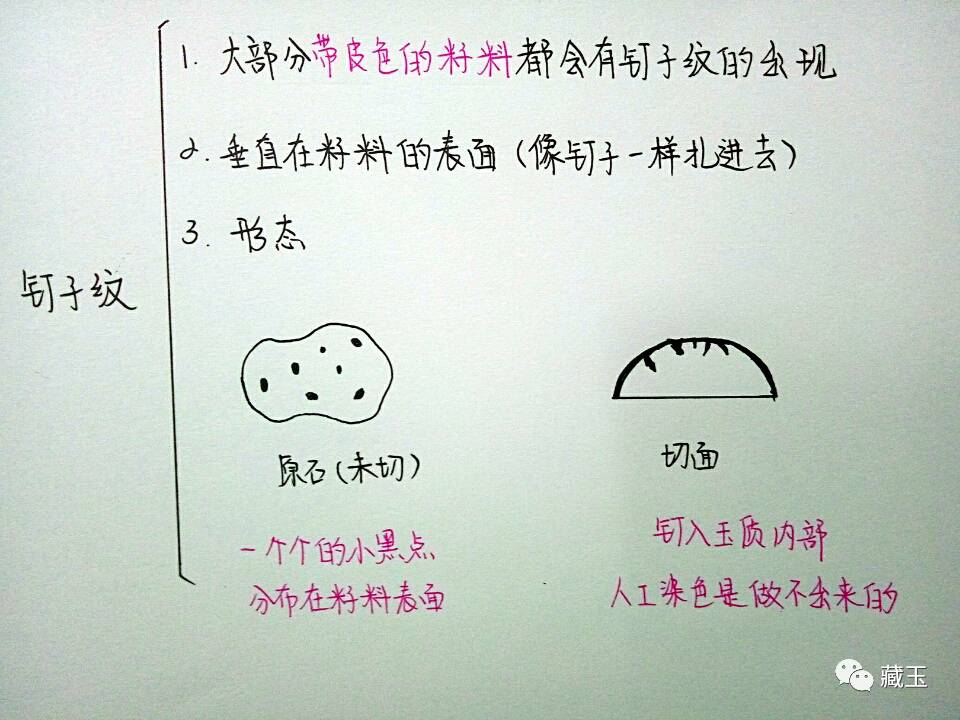 钉子纹
1. 大部分带皮色的籽料都会有钉子纹的出现
2. 垂直在籽料的表面（像钉子一样扎进去）
3. 形态
原石（未切）
切面
一个个的小黑点
分布在籽料表面
钉入玉质内部
人工染色是做不出来的
藏玉